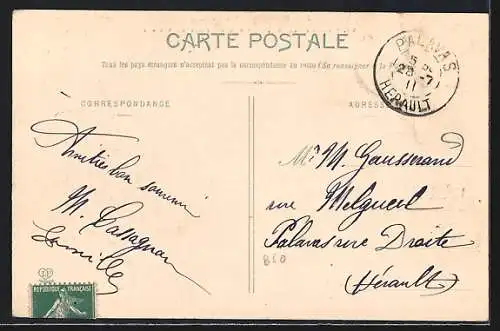 CARTE POSTALE
Tous les pays étrangers n'acceptent pas la correspondance au recto (Se renseigner à la
PALAVAS
5
25 -7
11
HERAULT
CORRESPONDANCE
ADRESSE
Amitiés bon souvenir
M. Cassagnau
famille
Mr M. Gausserand
rue Melgueil
Palavas rive Droite
(Hérault)
860
RÉPUBLIQUE FRANÇAISE